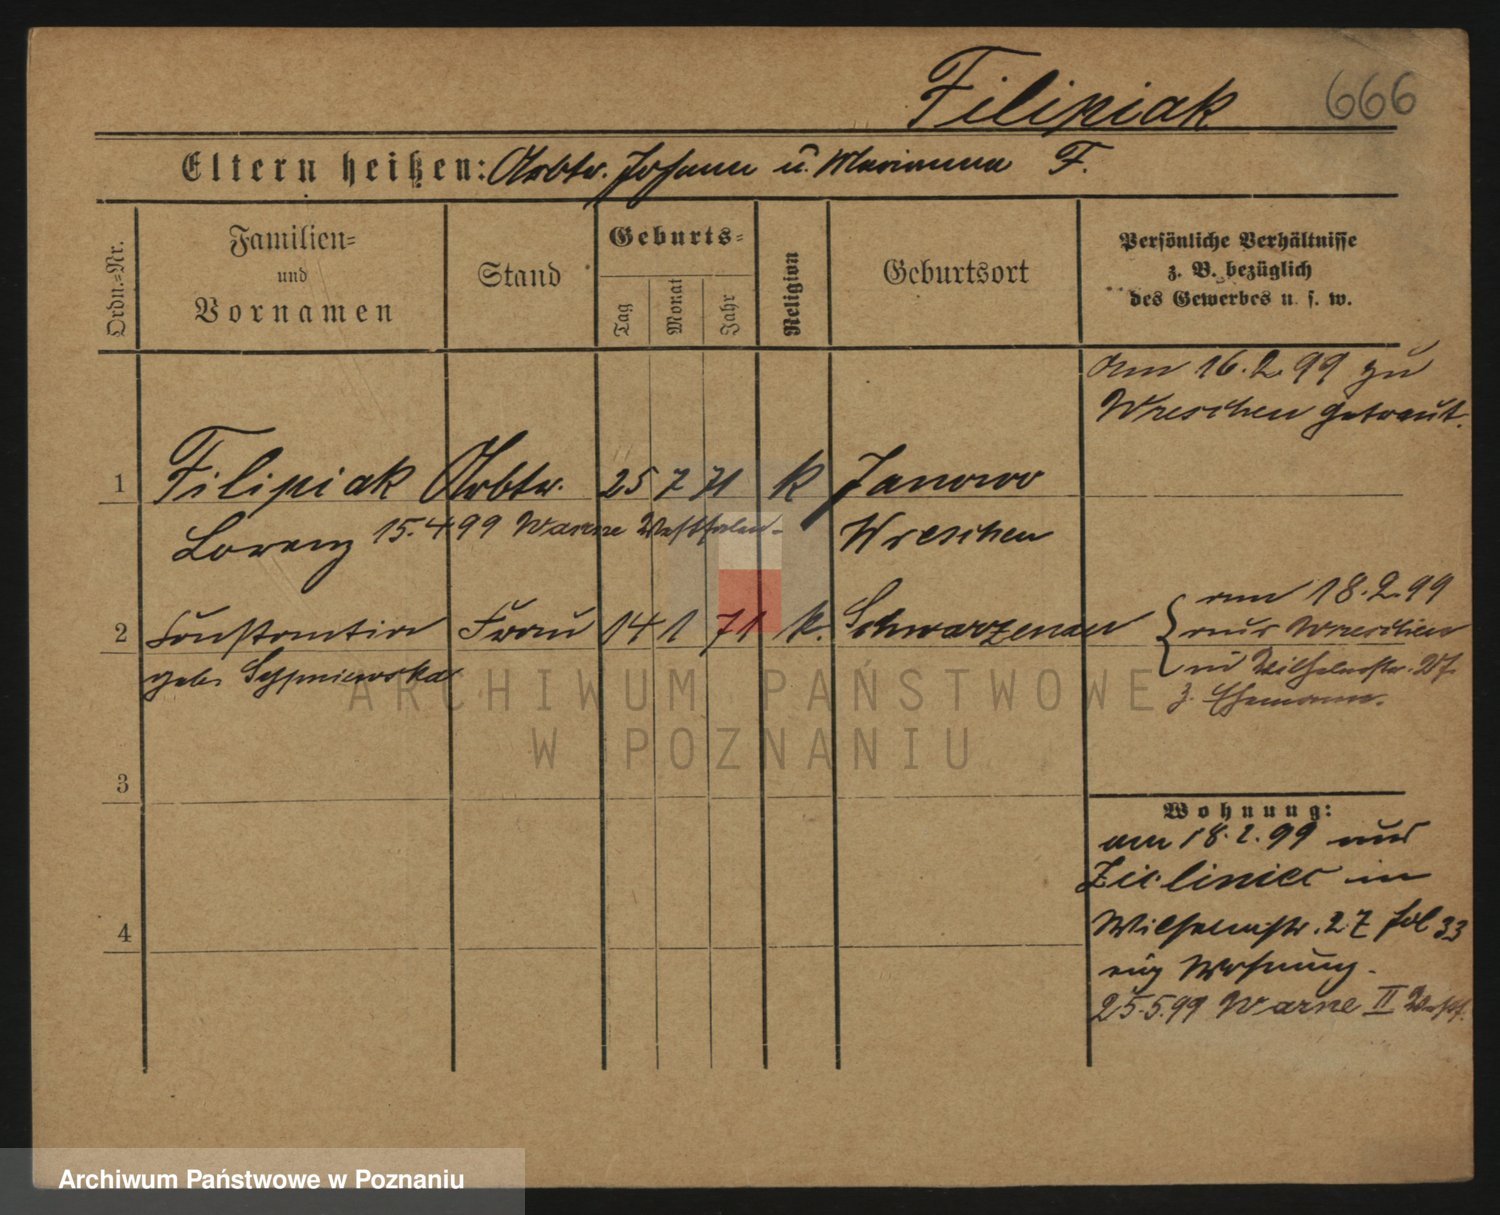 Filipiak 666
Eltern heißen: Arbtr. Johann u. Marianna F.
Ordn.=Nr.
Familien=
und
Vornamen
Stand
Geburts=
Tag
Monat
Jahr
Religion
Geburtsort
Persönliche Verhältnisse
z. B. bezüglich
des Gewerbes u. s. w.
am 16.2.99 zu
Wreschen getraut.
1 Filipiak Arbtr. 25 7 71 k Janowo
Lorenz 15.4 99 Warne Westfalen Wreschen
2 Constantia Frau 14 1 71 k. Schwarzenau
geb. Sypniewska
am 18.2.99
aus Wreschen
in Wilhelmstr. 27
z. Ehemann.
3
4
Wohnung:
am 18.2.99 aus
Zieliniec in
Wilhelmstr. 27 fol 33
eig Wohnung.
25.5.99 Warne II Westf.
ARCHIWUM PAŃSTWOWE
W POZNANIU
Archiwum Państwowe w Poznaniu